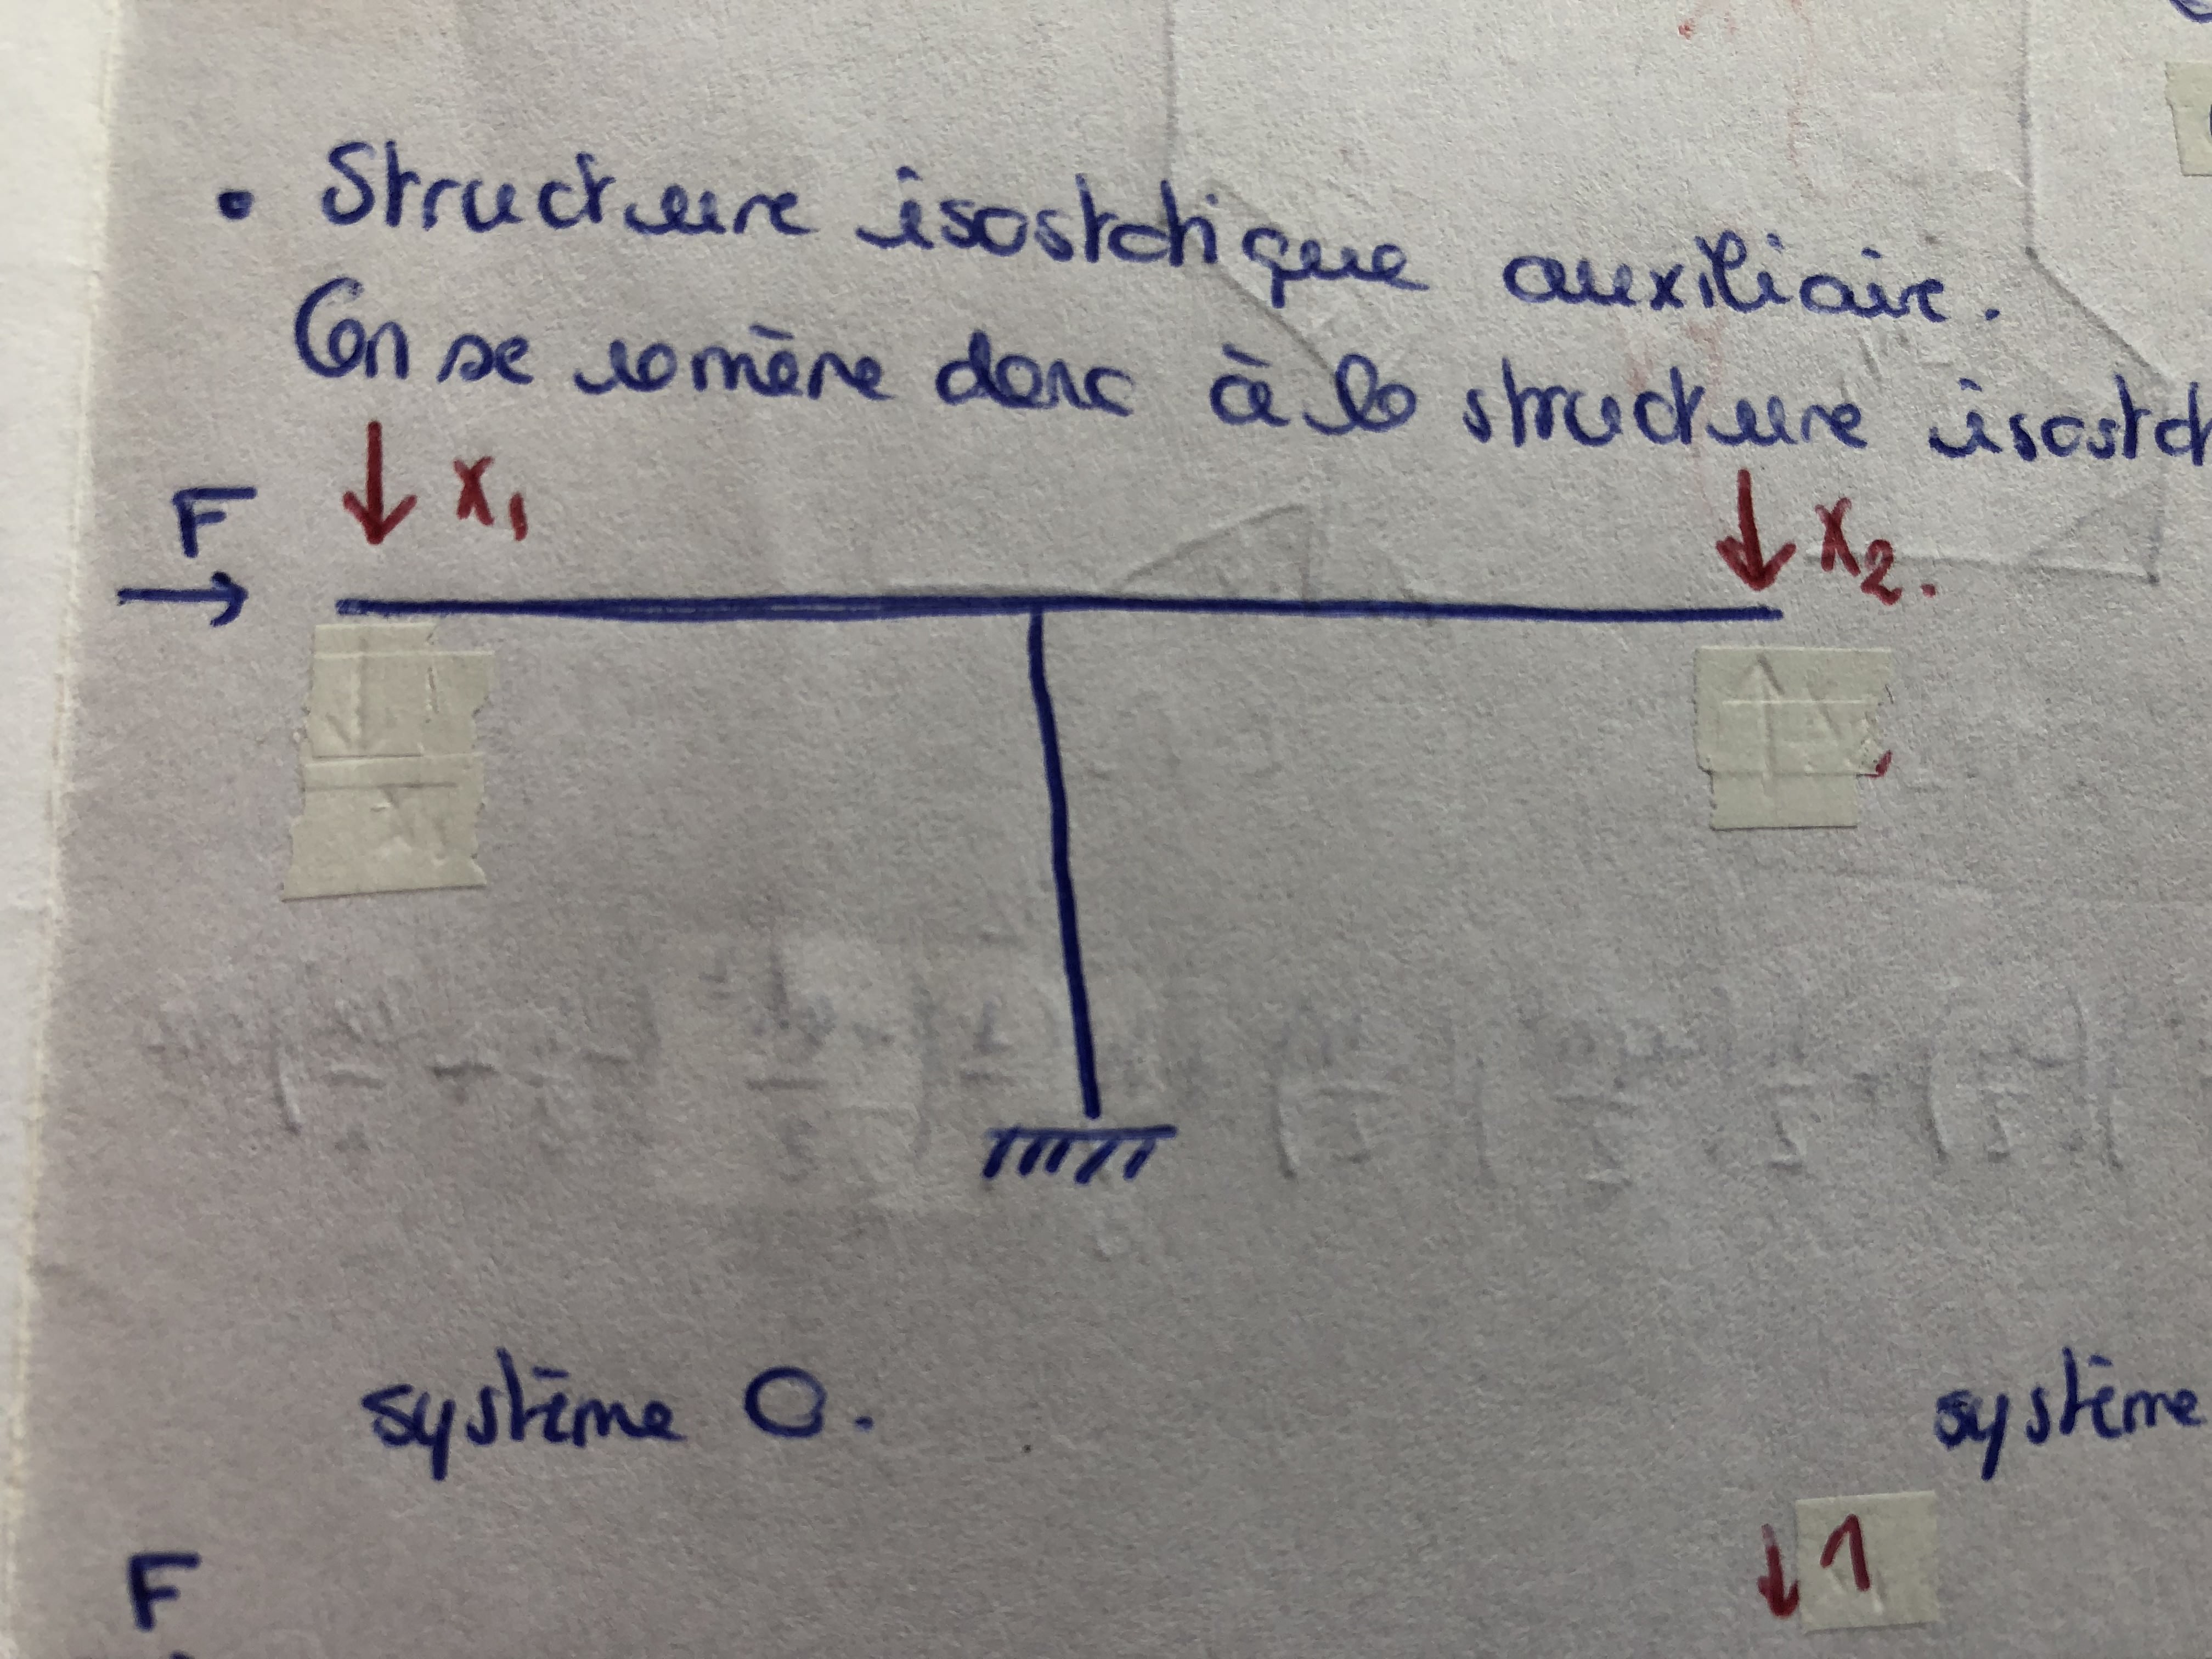 • Structure isostatique auxiliaire.
On se ramène donc à la structure isosta
F
X₁
X₂.
système 0.
système
F
1